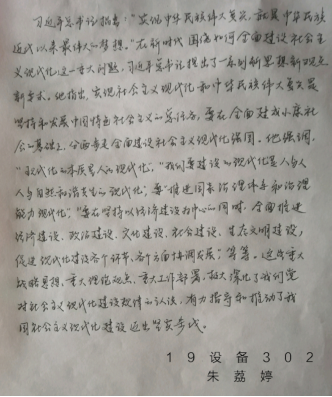 习近平总书记指出："实现中华民族伟大复兴，就是中华民族
近代以来最伟大的梦想。"在新时代围绕如何全面建设社会主
义现代化这一重大问题，习近平总书记提出了一系列新思想新观点
新要求。他指出，实现社会主义现代化和中华民族伟大复兴是
坚持和发展中国特色社会主义的总任务，要在全面建成小康社
会的基础上，全面建设社会主义现代化强国。他强调，
"现代化的本质是人的现代化"，"我们要建设的现代化是人与
人与自然和谐共生的现代化"；要"推进国家治理体系和治理
能力现代化"；"要在坚持以经济建设为中心的同时，全面推进
经济建设、政治建设、文化建设、社会建设、生态文明建设，
促进现代化建设各个环节、各个方面协调发展"；等等。这些重大
战略思想、重大理论观点、重大工作部署，极大深化了我们党
对社会主义现代化建设规律的认识，有力指导和推动了我
国社会主义现代化建设迈出坚实步伐。
19设备302
朱荔婷